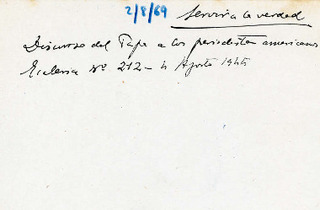 2/8/69
Servir a la verdad
Discurso del Papa a los periodistas americanos
Ecclesia Nº 212 - 4 Agosto 1945